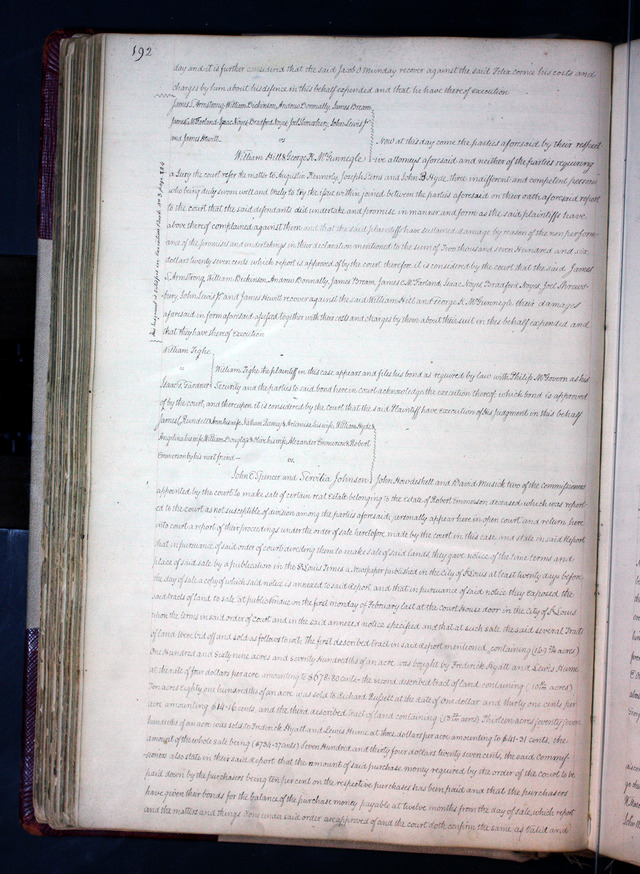 192
day and it is further considered that the said Jacob O Munday recover against the said Felix Coonce his costs and
charges by him about his defence in this behalf expended and that he have thereof execution
James S. Armstrong, William Dickinson, Andrew Donnally, James Bream,
James C. McFarland, Isaac Noyes, Bradford Noyes, Joel Shrewsbury, John Lewis Jr
and James Hewitt
vs
William Hill & George K. McGunnegle
Now at this day come the parties aforesaid by their respect
ive attorneys aforesaid and neither of the parties requiring
a Jury the court refer the matter to Augustin Kennerly, Joseph Sions and John B Hyde three indifferent and competent persons
who being duly sworn well and truly to try the issue within joined between the parties aforesaid on their oath aforesaid report
to the court that the said defendants did undertake and promise in manner and form as the said plaintiffs have
above thereof complained against them and that the said plaintiffs have sustained damage by reason of the non perform
ance of the promises and undertakings in their declaration mentioned to the sum of Two thousand seven Hundred and six
dollars twenty seven cents which report is approved of by the court therefore it is considered by the court that the said James
S. Armstrong, William Dickinson, Andrew Donnally, James Bream, James C. McFarland, Isaac Noyes, Bradford Noyes, Joel Shrews-
bury, John Lewis Jr and James Hewitt recover against the said William Hill and George K. McGunnegle their damages
aforesaid in form aforesaid assessed together with their costs and charges by them about their suit in this behalf expended and
that they have thereof execution
William Tighe
vs
Isaac T. Gardner
William Tighe the plaintiff in this case appears and files his bond as required by law with Philip McGovern as his
Security and the parties to said bond here in court acknowledge the execution thereof, which bond is approved
of by the court, and thereupon it is considered by the court that the said Plaintiff have execution of His judgment in this behalf
James C. Rundell & Ann his wife, Nathan and Artemisa his wife, William Hyde &
Angelina his wife, William Douglass & Ann his wife, Alexander Emmerson & Robert
Emmerson by his next friend
vs.
John E. Spencer and Servilia Johnson
John Howdeshell and David Musick two of the commissioners
appointed by the court to make sale of certain real Estate belonging to the Estate of Robert Emmerson deceased which was report
ed to the court as not susceptible of division among the parties aforesaid, personally appear here in open court and return here
into court a report of their proceedings under the order of sale heretofore made by the court in this case, and state in said Report
that in pursuance of said order of court directing them to make sale of said lands, they gave notice of the time terms and
place of said sale by a publication in the St Louis Times a newspaper published in the City of St Louis at least twenty days before
the day of sale a copy of which said notice is annexed to said Report and that in pursuance of said notice they exposed the
said tracts of land to sale at public Vendue on the first monday of February last at the Court House door in the City of St Louis
upon the terms in said order of court and in the said annexed notice specified and that at such sale the said several Tracts
of land were bid off and sold as follows to wit: The first described tract in said report mentioned, containing (169 70/100 acres)
One Hundred and Sixty nine acres and Seventy hundredths of an acre was bought by Frederick Hyatt and Lewis Hume
at the rate of four dollars per acre amounting to $678.80 cents - the second described tract of land containing (10 80/100 acres)
Ten acres Eighty one hundredths of an acre was sold to Richard Russell at the date of one dollar and thirty one cents per
acre amounting $14-16 cents, and the third described tract of land containing (13 77/100 acres) Thirteen acres seventy Seven
hundredths of an acre was sold to Frederick Hyatt and Lewis Hume at three dollars per acre amounting to $41-31 cents, the
amount of the whole sale being ($734-27 cents) Seven Hundred and thirty four dollars twenty seven cents, the said commis-
sioners also state in their said report that the amount of said purchase money required by the order of the court to be
paid down by the purchasers being ten per cent on the respective purchases has been paid and that the purchasers
have given their bonds for the balance of the purchase money payable at twelve months from the day of sale, which report
and the matters and things done under said order are approved of and the court doth confirm the same as valid and